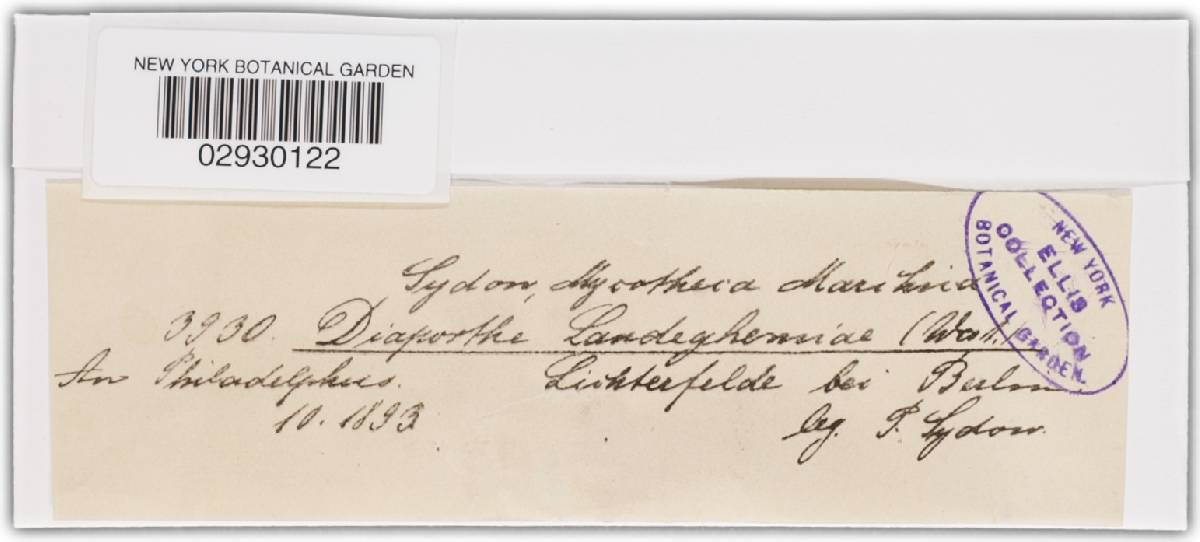 NEW YORK BOTANICAL GARDEN
02930122
Sydon, Mycotheca Marchica
3930. Diaporthe Landeghemiae (West.)
An Philadelphus. Lichterfelde bei Berlin
10. 1893 leg. P. Sydow.
NEW YORK
ELLIS
COLLECTION
BOTANICAL GARDEN.